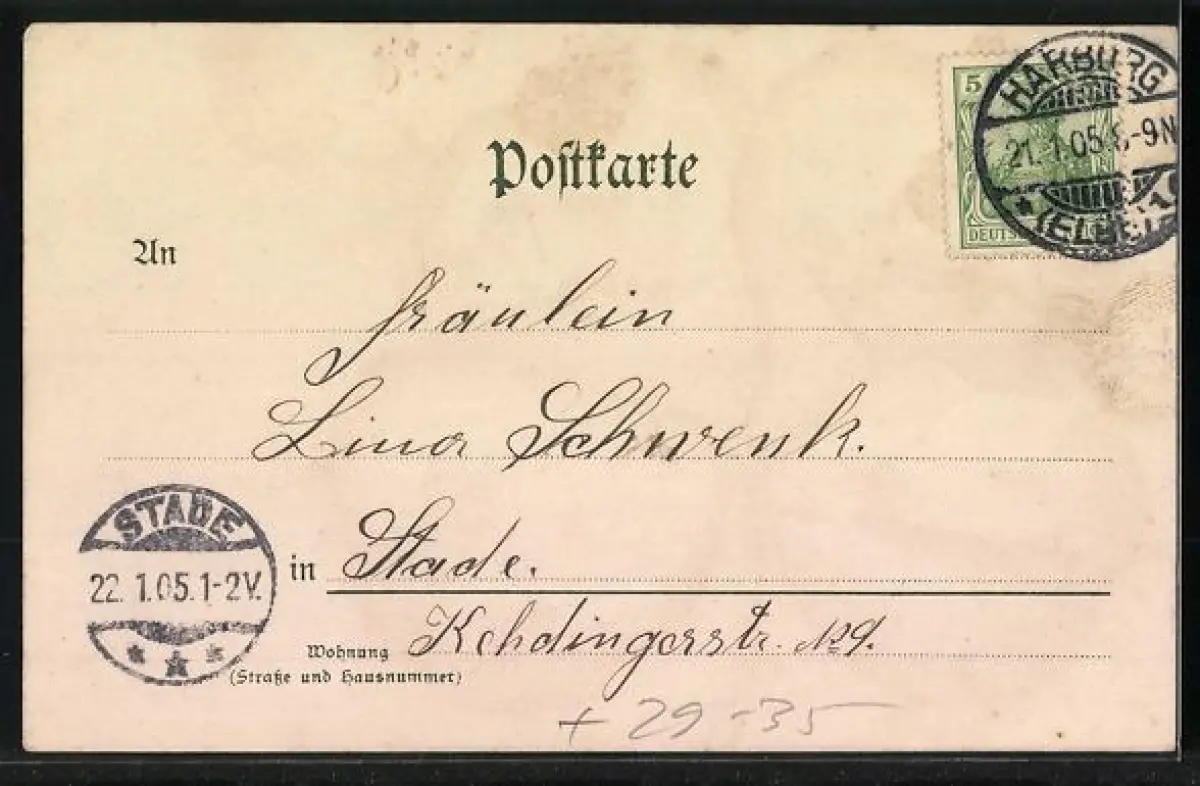 Postkarte
5
HARBURG
21.1.05.8-9N
(ELBE)
DEUTSCHES
An
Fräulein
Lina Schwenk.
in Stade.
STADE
22.1.05.1-2V.
Wohnung Kehdingerstr. No 9.
(Straße und Hausnummer)
+ 29-35